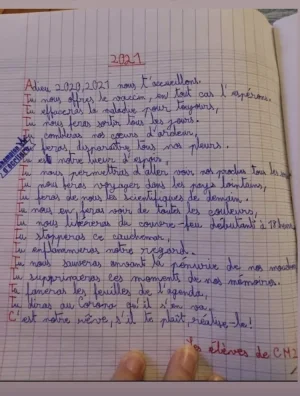 2021
Adieu 2020, 2021 nous t'accueillons.
Tu nous offres le vaccin, en tout cas l'espérons.
Tu effaceras la maladie pour toujours,
Tu nous feras sortir tous les jours.
Tu combleras nos cœurs d'ardeur,
Tu feras disparaître tous nos pleurs.
Tu es notre lueur d'espoir,
Tu nous permettras d'aller voir nos proches tous les
Tu nous feras voyager dans les pays lointains,
Tu feras de nous les scientifiques de demain.
Tu nous en feras voir de toutes les couleurs,
Tu nous libéreras du couvre-feu débutant à 18 heures
Tu stopperas ce cauchemar,
Tu enflammeras notre regard.
Tu nous sauveras avant la pénurie de nos
Tu supprimeras ces moments de nos mémoires.
Tu faneras les feuilles de l'agenda,
Tu diras au Corona qu'il s'en va.
C'est notre rêve, s'il te plaît, réalise-le!
Les élèves de CM2